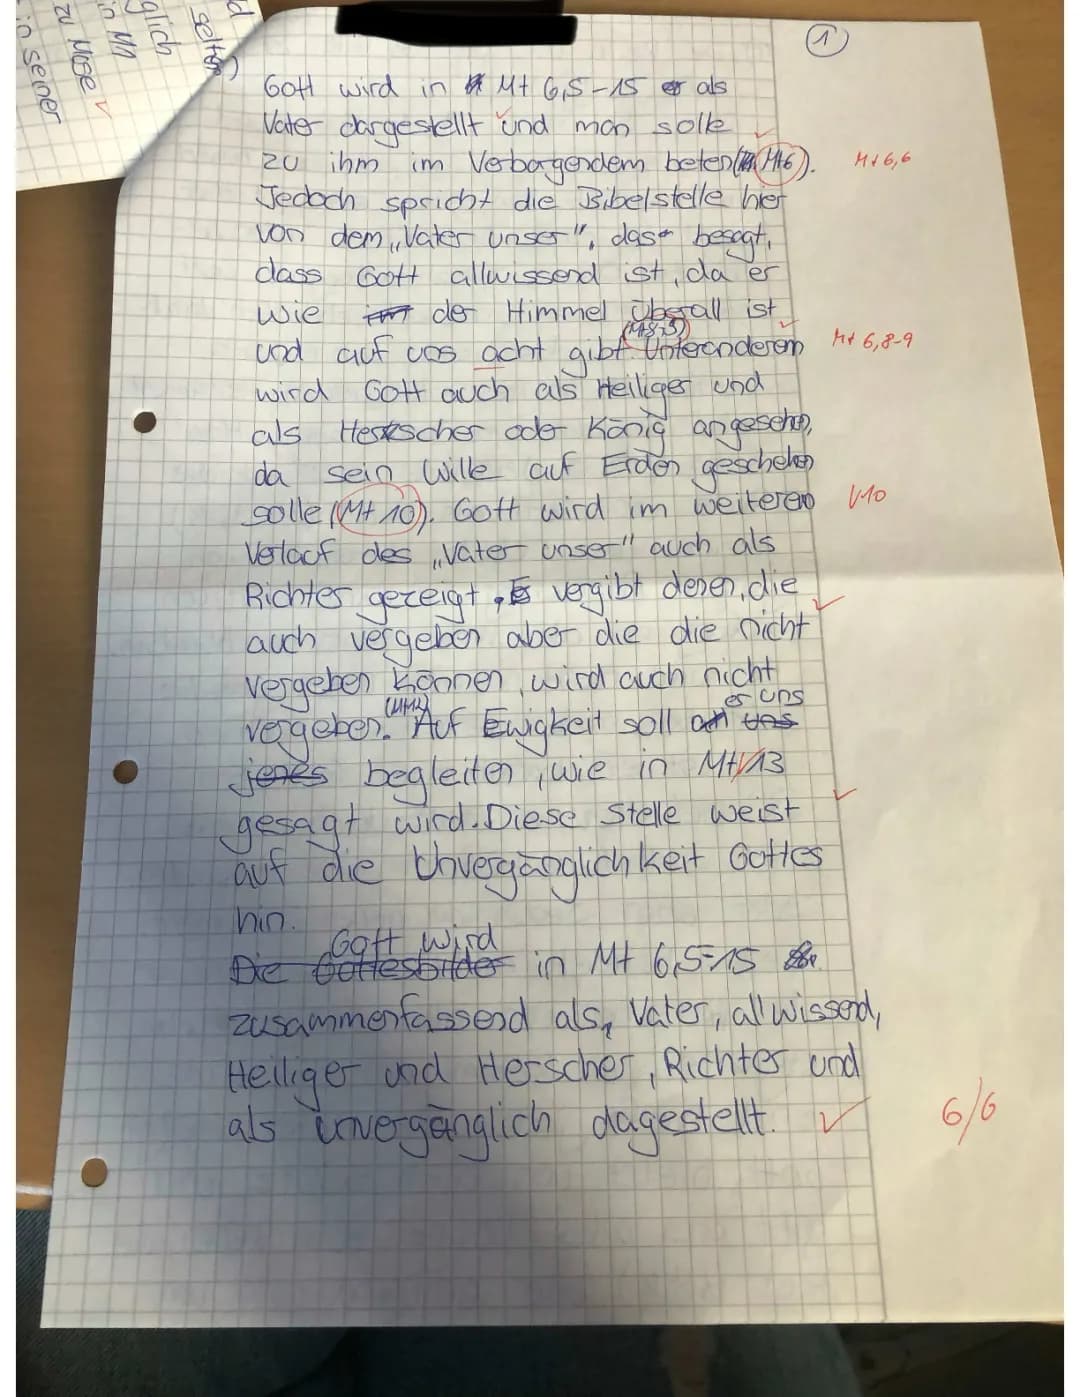 1
Gott wird in Mt 6,5-15 als
Vater dargestellt und man solle
zu ihm im Verborgendem beten (Mt6).
Mt 6,6
Jedoch spricht die Bibelstelle hier
von dem „Vater unser", das besagt,
dass Gott allwissend ist, da er
wie der Himmel überall ist
und auf uns acht gibt (Mt8,9) Unteranderem
Mt 6,8-9
wird Gott auch als Heiliger und
als Herrscher oder König angesehen,
da sein Wille auf Erden geschehen
solle (Mt 10). Gott wird im weiteren
V.10
Verlauf des „Vater unser" auch als
Richter gezeigt, Er vergibt denen, die
auch vergeben aber die die nicht
vergeben können, wird auch nicht
vergeben. (Mt12) Auf Ewigkeit soll er uns
jenes begleiten, wie in Mt V13
gesagt wird. Diese Stelle weist
auf die Unvergänglichkeit Gottes
hin.
Gott wird
Die Gottesbilder in Mt 6,5-15
zusammenfassend als Vater, allwissend,
Heiliger und Herscher, Richter und
als unvergänglich dagestellt.
6/6
selten)
glich
in Mn
zu Mose
in seiner